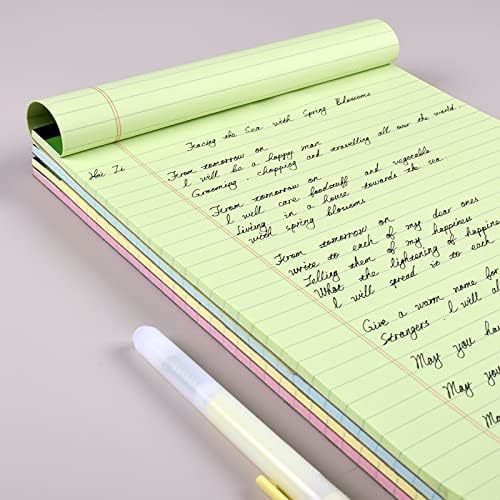 Facing the Sea with Spring Blossoms
Hai Zi
From tomorrow on
I will be a happy man
Grooming, chopping and travelling all over the world.
From tomorrow on
I will care foodstuff and vegetable
Living in a house towards the sea
with spring blossoms
From tomorrow on
write to each of my dear ones
Telling them of my happiness
What the lightening of happine
I will spread it to each
Give a warm name for
Strangers. I will al
May you ha
May you
Ma